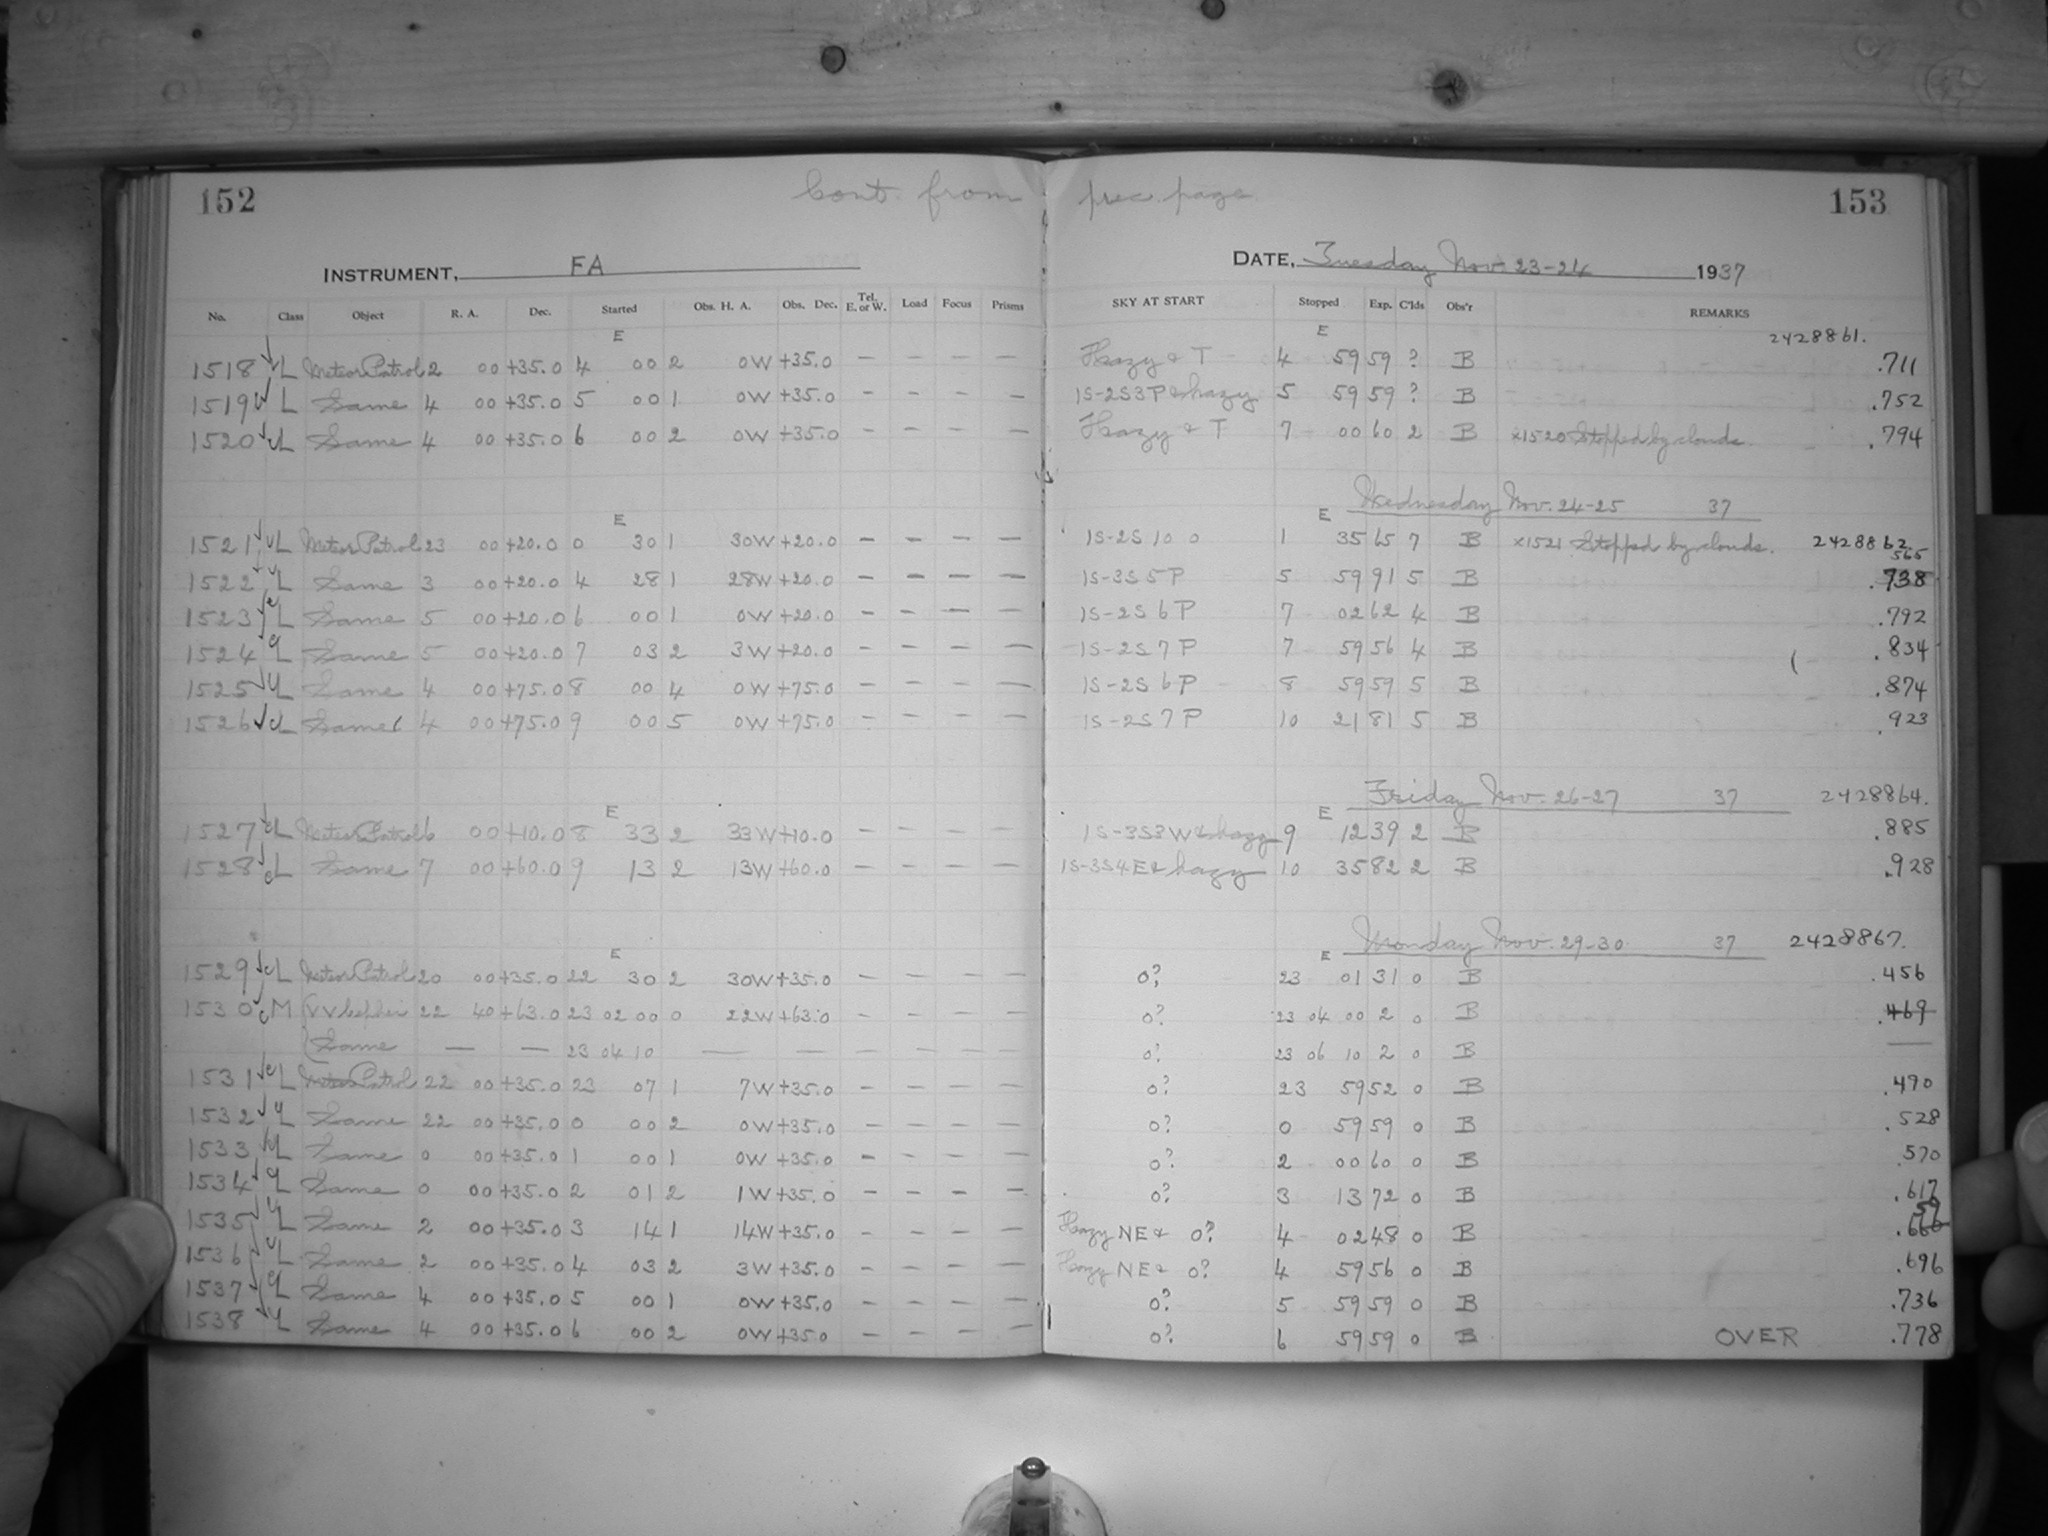 152 Cont. from prec. page 153
INSTRUMENT, FA DATE, Tuesday Nov. 23-24 1937
No. Class Object R. A. Dec. Started Obs. H. A. Obs. Dec. Tel. E. or W. Load Focus Prisms SKY AT START Stopped Exp. C'lds Obs'r REMARKS
E E 2428861.
1518 L Meteor Patrol 2 00 +35.0 4 00 2 0W +35.0 — — — — Hazy & T 4 59 59 ? B .711
1519 L Same 4 00 +35.0 5 00 1 0W +35.0 — — — — 1S-2S3P & hazy 5 59 59 ? B .752
1520 L Same 4 00 +35.0 6 00 2 0W +35.0 — — — — Hazy & T 7 00 60 2 B x1520 Stopped by clouds. .794
E E Wednesday Nov. 24-25 37
1521 L Meteor Patrol 23 00 +20.0 0 30 1 30W +20.0 — — — — 1S-2S 10 0 1 35 65 7 B x1521 Stopped by clouds. 2428862.
565
1522 L Same 3 00 +20.0 4 28 1 28W +20.0 — — — — 1S-3S 5P 5 59 91 5 B .738
1523 L Same 5 00 +20.0 6 00 1 0W +20.0 — — — — 1S-2S 6P 7 02 62 4 B .792
1524 L Same 5 00 +20.0 7 03 2 3W +20.0 — — — — 1S-2S 7P 7 59 56 4 B .834
1525 L Same 4 00 +75.0 8 00 4 0W +75.0 — — — — 1S-2S 6P 8 59 59 5 B .874
1526 L Same 4 00 +75.0 9 00 5 0W +75.0 — — — — 1S-2S 7P 10 21 81 5 B .923
E E Friday Nov. 26-27 37 2428864.
1527 L Meteor Patrol 6 00 +10.0 8 33 2 33W +10.0 — — — — 1S-3S3W & hazy 9 12 39 2 B .885
1528 L Same 7 00 +60.0 9 13 2 13W +60.0 — — — — 1S-3S4E & hazy 10 35 82 2 B .928
E E Monday Nov. 29-30 37 2428867.
1529 L Meteor Patrol 20 00 +35.0 22 30 2 30W +35.0 — — — — 0? 23 01 31 0 B .456
1530 M VV Cephei 22 40 +63.0 23 02 00 0 22W +63.0 — — — — 0? 23 04 00 2 0 B .469
Same — — 23 04 10 — — — — — — 0? 23 06 10 2 0 B —
1531 L Meteor Patrol 22 00 +35.0 23 07 1 7W +35.0 — — — — 0? 23 59 52 0 B .490
1532 L Same 22 00 +35.0 0 00 2 0W +35.0 — — — — 0? 0 59 59 0 B .528
1533 L Same 0 00 +35.0 1 00 1 0W +35.0 — — — — 0? 2 00 60 0 B .570
1534 L Same 0 00 +35.0 2 01 2 1W +35.0 — — — — 0? 3 13 72 0 B .617
59
1535 L Same 2 00 +35.0 3 14 1 14W +35.0 — — — — Hazy NE & 0? 4 02 48 0 B .660
1536 L Same 2 00 +35.0 4 03 2 3W +35.0 — — — — Hazy NE & 0? 4 59 56 0 B .696
1537 L Same 4 00 +35.0 5 00 1 0W +35.0 — — — — 0? 5 59 59 0 B .736
1538 L Same 4 00 +35.0 6 00 2 0W +35.0 — — — — 0? 6 59 59 0 B OVER .778